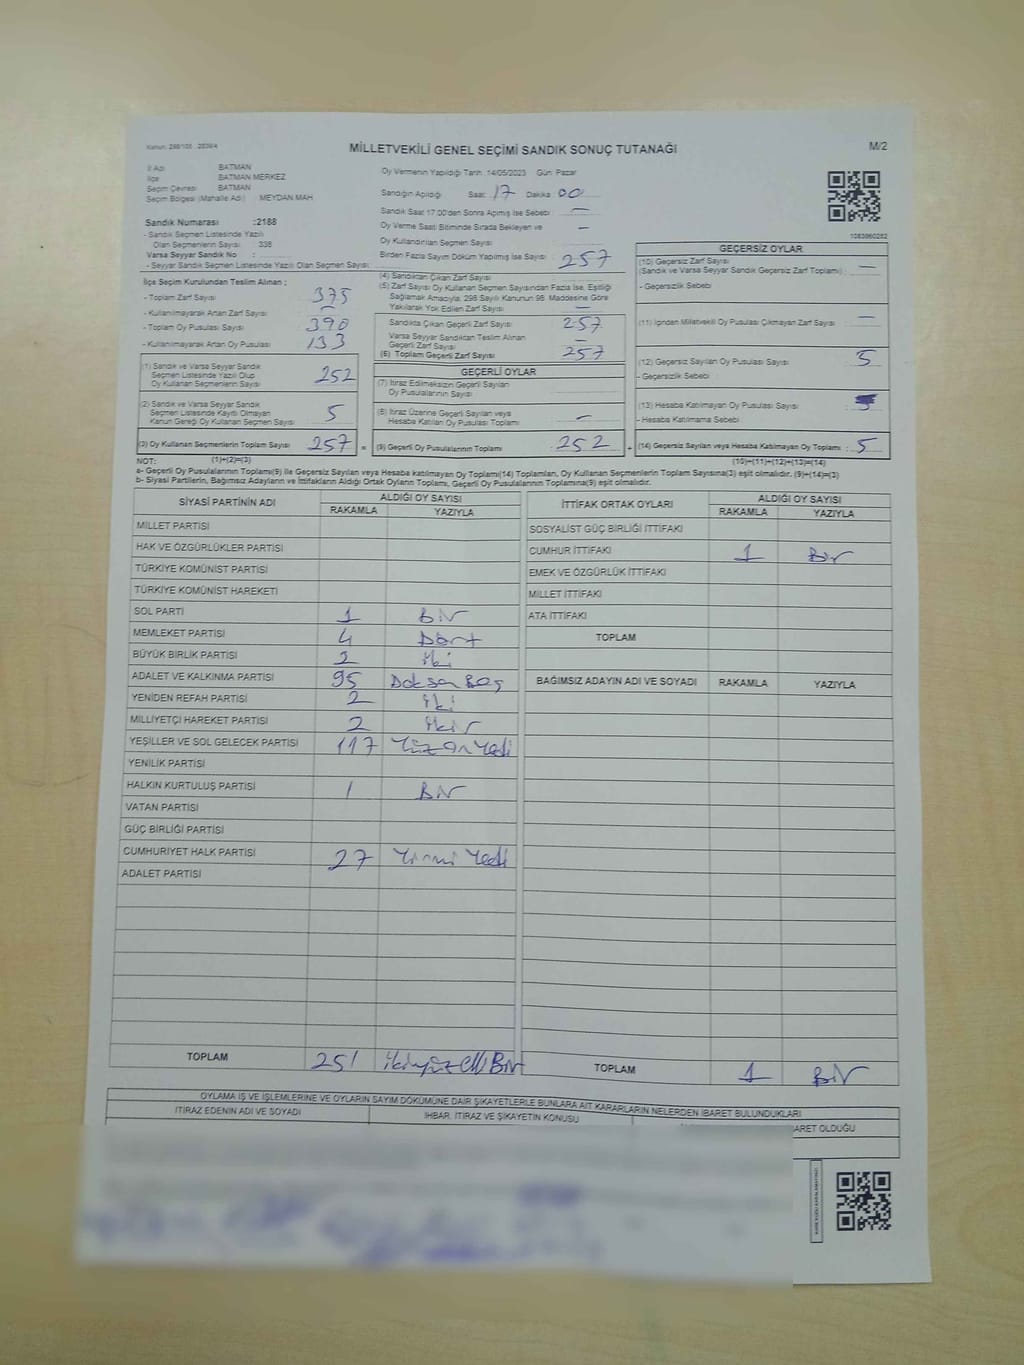 Kanun: 298/105 , 2839/4
MİLLETVEKİLİ GENEL SEÇİMİ SANDIK SONUÇ TUTANAĞI
M/2
İl Adı BATMAN
İlçe BATMAN MERKEZ
Seçim Çevresi BATMAN
Seçim Bölgesi (Mahalle Adı) MEYDAN MAH
Sandık Numarası :2188
- Sandık Seçmen Listesinde Yazılı
Olan Seçmenlerin Sayısı 338
Varsa Seyyar Sandık No :
- Seyyar Sandık Seçmen Listesinde Yazılı Olan Seçmen Sayısı:
Oy Vermenin Yapıldığı Tarih :14/05/2023 Gün: Pazar
Sandığın Açıldığı Saat: 17 Dakika 00
Sandık Saat 17.00'den Sonra Açılmış İse Sebebi: —
Oy Verme Saati Bitiminde Sırada Bekleyen ve —
Oy Kullandırılan Seçmen Sayısı
Birden Fazla Sayım Döküm Yapılmış İse Sayısı
1083960282
İlçe Seçim Kurulundan Teslim Alınan ;
- Toplam Zarf Sayısı 375
- Kullanılmayarak Artan Zarf Sayısı : —
- Toplam Oy Pusulası Sayısı 390
- Kullanılmayarak Artan Oy Pusulası 133
(1) Sandık ve Varsa Seyyar Sandık
Seçmen Listesinde Yazılı Olup
Oy Kullanan Seçmenlerin Sayısı 252
(2) Sandık ve Varsa Seyyar Sandık
Seçmen Listesinde Kayıtlı Olmayan
Kanun Gereği Oy Kullanan Seçmen Sayısı 5
(3) Oy Kullanan Seçmenlerin Toplam Sayısı 257 =
(1)+(2)=(3)
(4) Sandıktan Çıkan Zarf Sayısı 257
(5) Zarf Sayısı Oy Kullanan Seçmen Sayısından Fazla İse, Eşitliği
Sağlamak Amacıyla, 298 Sayılı Kanunun 98. Maddesine Göre
Yakılarak Yok Edilen Zarf Sayısı —
Sandıkta Çıkan Geçerli Zarf Sayısı 257
Varsa Seyyar Sandıktan Teslim Alınan
Geçerli Zarf Sayısı —
(6) Toplam Geçerli Zarf Sayısı 257
GEÇERLİ OYLAR
(7) İtiraz Edilmeksizin Geçerli Sayılan
Oy Pusulalarının Sayısı
(8) İtiraz Üzerine Geçerli Sayılan veya
Hesaba Katılan Oy Pusulası Toplamı —
(9) Geçerli Oy Pusulalarının Toplamı 252 +
GEÇERSİZ OYLAR
(10) Geçersiz Zarf Sayısı
(Sandık ve Varsa Seyyar Sandık Geçersiz Zarf Toplamı) : —
- Geçersizlik Sebebi
(11) İçinden Milletvekili Oy Pusulası Çıkmayan Zarf Sayısı : —
(12) Geçersiz Sayılan Oy Pusulası Sayısı 5
- Geçersizlik Sebebi
(13) Hesaba Katılmayan Oy Pusulası Sayısı
- Hesaba Katılmama Sebebi
(14) Geçersiz Sayılan veya Hesaba Katılmayan Oy Toplamı : 5
(10)+(11)+(12)+(13)=(14)
NOT:
a- Geçerli Oy Pusulalarının Toplamı(9) ile Geçersiz Sayılan veya Hesaba katılmayan Oy Toplamı(14) Toplamları, Oy Kullanan Seçmenlerin Toplam Sayısına(3) eşit olmalıdır. (9)+(14)=(3)
b- Siyasi Partilerin, Bağımsız Adayların ve İttifakların Aldığı Ortak Oyların Toplamı, Geçerli Oy Pusulalarının Toplamına(9) eşit olmalıdır.
SİYASİ PARTİNİN ADI ALDIĞI OY SAYISI
RAKAMLA YAZIYLA
MİLLET PARTİSİ
HAK VE ÖZGÜRLÜKLER PARTİSİ
TÜRKİYE KOMÜNİST PARTİSİ
TÜRKİYE KOMÜNİST HAREKETİ
SOL PARTİ 1 Bir
MEMLEKET PARTİSİ 4 Dört
BÜYÜK BİRLİK PARTİSİ 2 iki
ADALET VE KALKINMA PARTİSİ 95 Doksan Beş
YENİDEN REFAH PARTİSİ 2 iki
MİLLİYETÇİ HAREKET PARTİSİ 2
YEŞİLLER VE SOL GELECEK PARTİSİ 117 Yüz On Yedi
YENİLİK PARTİSİ
HALKIN KURTULUŞ PARTİSİ 1 Bir
VATAN PARTİSİ
GÜÇ BİRLİĞİ PARTİSİ
CUMHURİYET HALK PARTİSİ 27 Yirmi Yedi
ADALET PARTİSİ
TOPLAM 251 ikiyüz elli Bir
İTTİFAK ORTAK OYLARI ALDIĞI OY SAYISI
RAKAMLA YAZIYLA
SOSYALİST GÜÇ BİRLİĞİ İTTİFAKI
CUMHUR İTTİFAKI 1 Bir
EMEK VE ÖZGÜRLÜK İTTİFAKI
MİLLET İTTİFAKI
ATA İTTİFAKI
TOPLAM
BAĞIMSIZ ADAYIN ADI VE SOYADI RAKAMLA YAZIYLA
TOPLAM 1 Bir
OYLAMA İŞ VE İŞLEMLERİNE VE OYLARIN SAYIM DÖKÜMÜNE DAİR ŞİKAYETLERLE BUNLARA AİT KARARLARIN NELERDEN İBARET BULUNDUKLARI
İTİRAZ EDENİN ADI VE SOYADI İHBAR, İTİRAZ VE ŞİKAYETİN KONUSU
ARET OLDUĞU